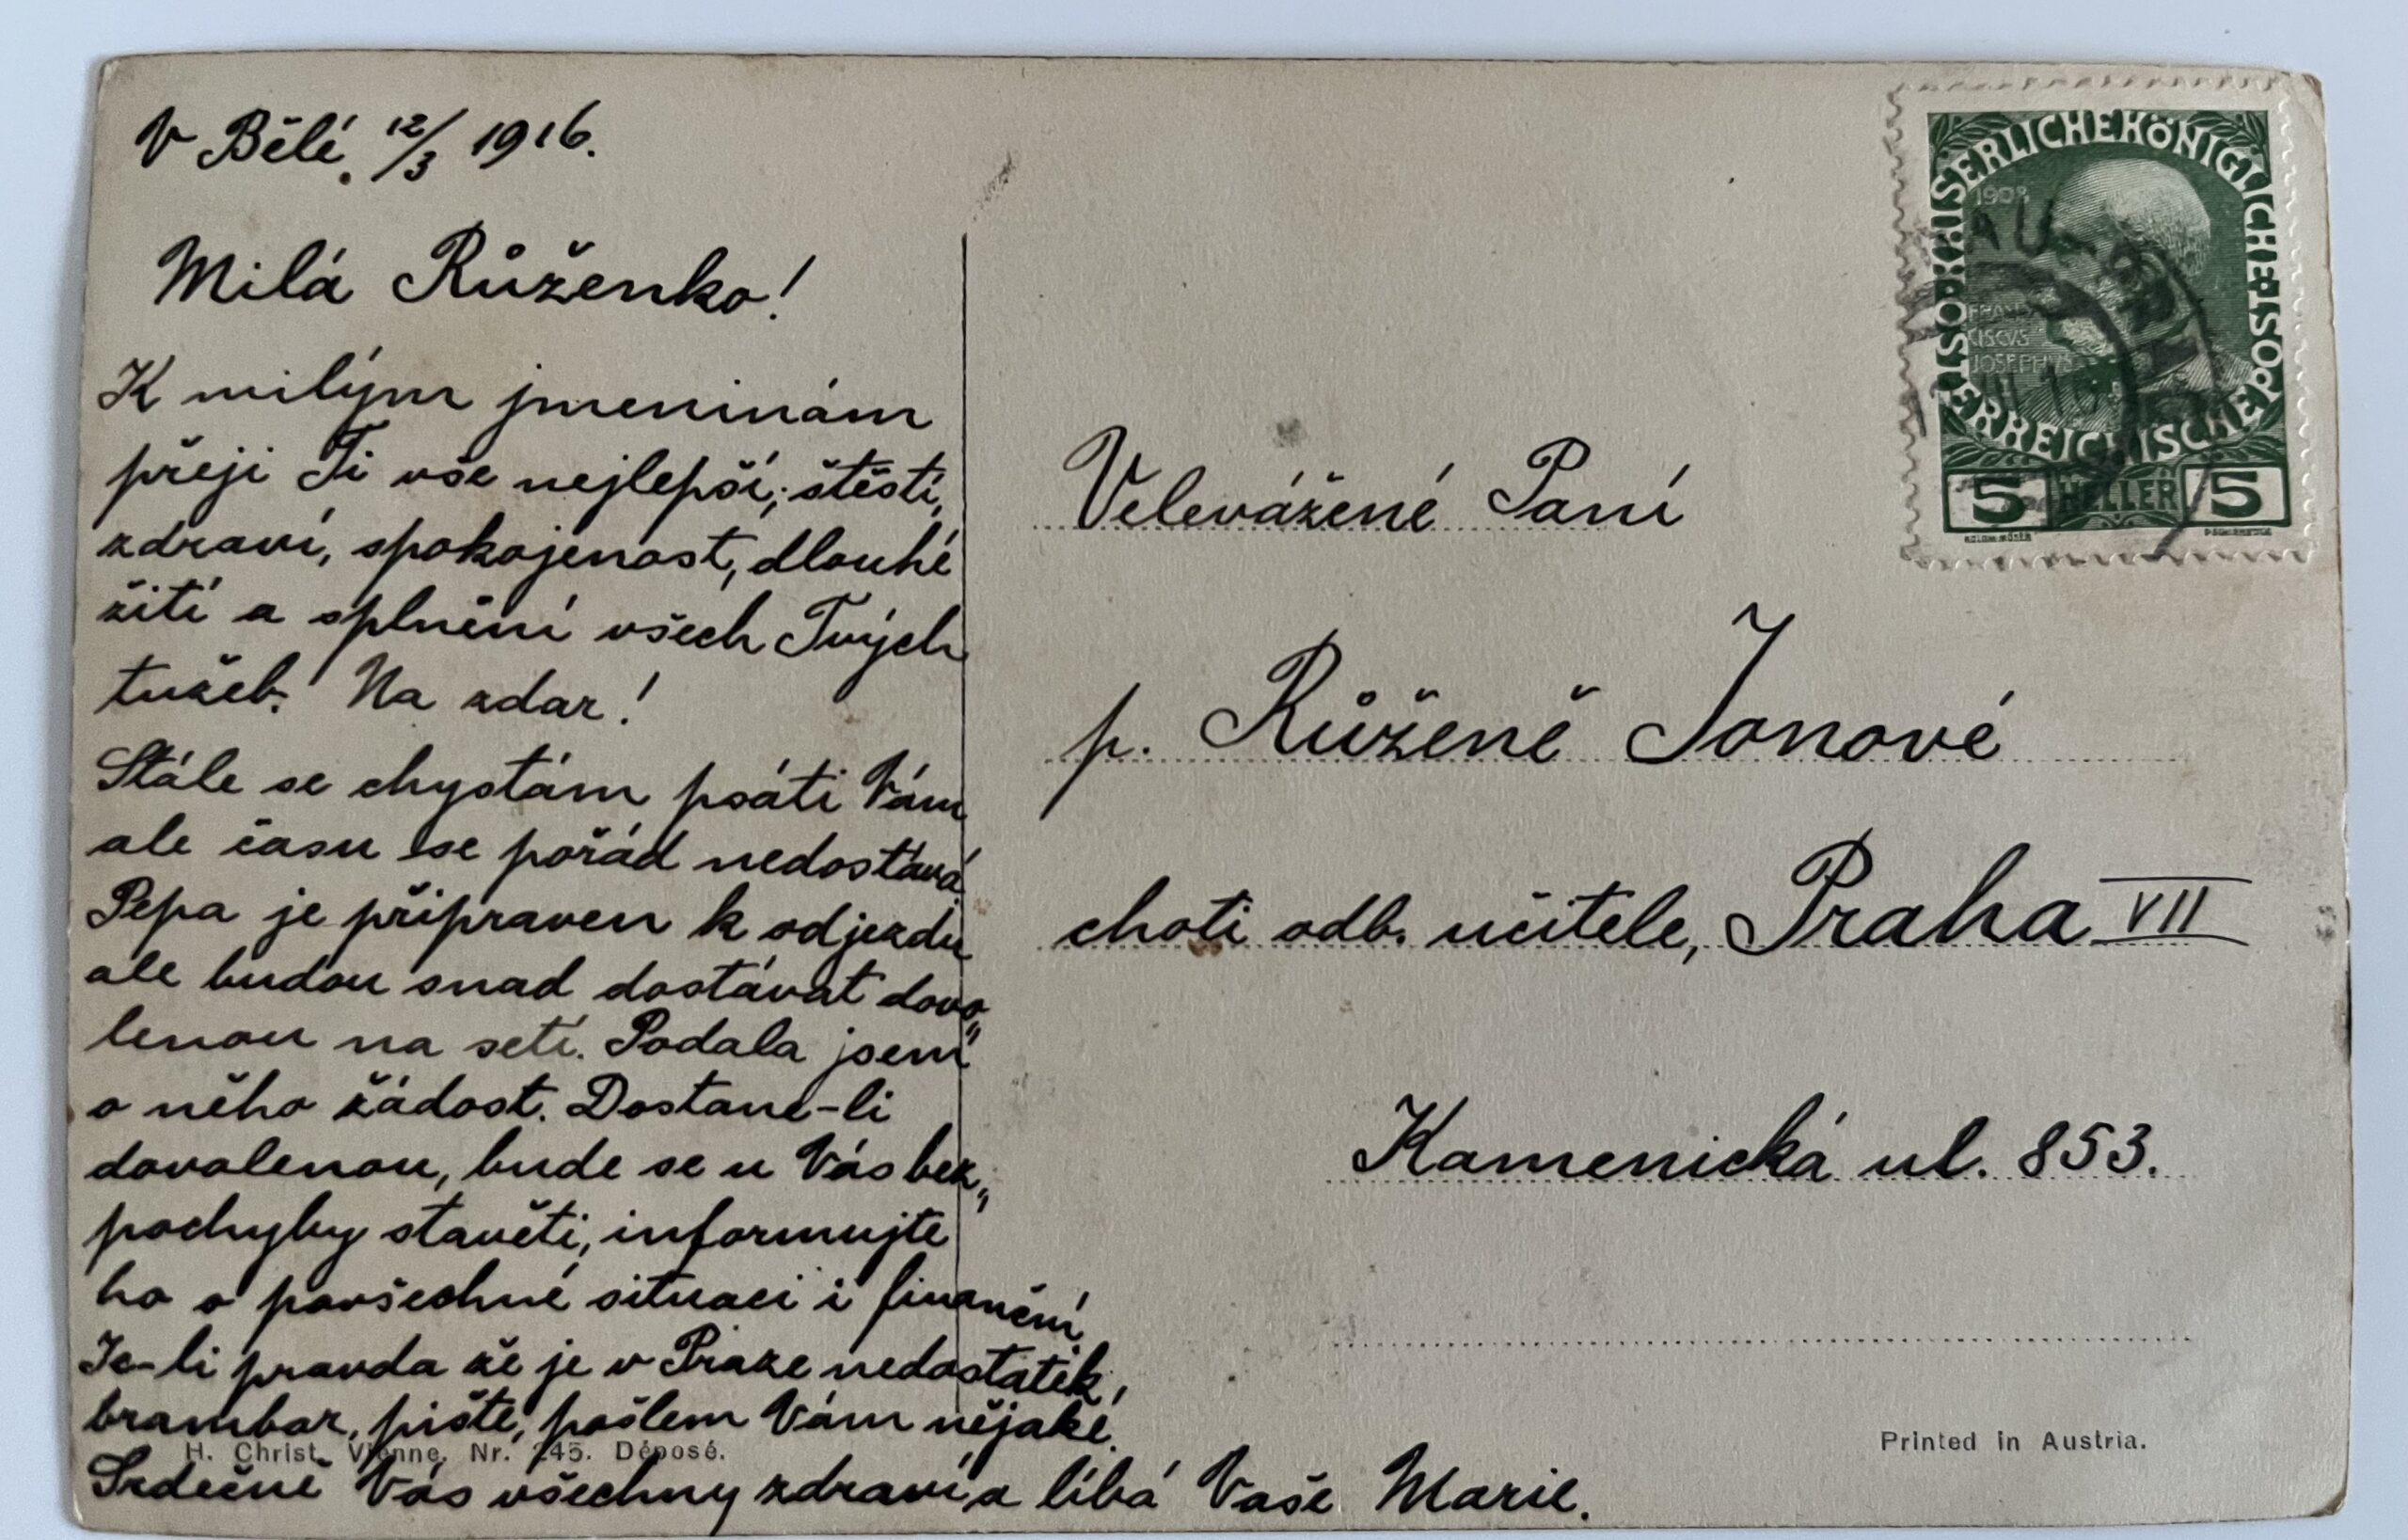 V Bělé, 12/3 1916.
Milá Růženko!
K milým jmeninám
přeji Ti vše nejlepší; štěstí,
zdraví, spokojenost, dlouhé
žití a splnění všech Tvých
tužeb. Na zdar!
Stále se chystám psáti Vám
ale času se pořád nedostává.
Pepa je připraven k odjezdu
ale budou snad dostávat dovo„
lenou na setí. Podala jsem
o něho žádost. Dostane-li
dovolenou, bude se u Vás bez„
pochyby stavěti, informujte
ho o povšechné situaci i finanční
Je-li pravda že je v Praze nedostatek,
brambor, pište, pošlem Vám nějaké.
H. Christ, Vienne, Nr. 245. Déposé.
Srdečně Vás všechny zdraví a líbá Vaše Marie.
KAISERLICHE KÖNIGLICHE POST
ÖSTERREICHISCHE
1908
FRANS
CISCVS
JOSEPHVS
5 HELLER 5
KOLOM. MOSER
Velevážené Paní
p. Růženě Jonové
choti odb. učitele, Praha VII
Kamenická ul. 853.
Printed in Austria.